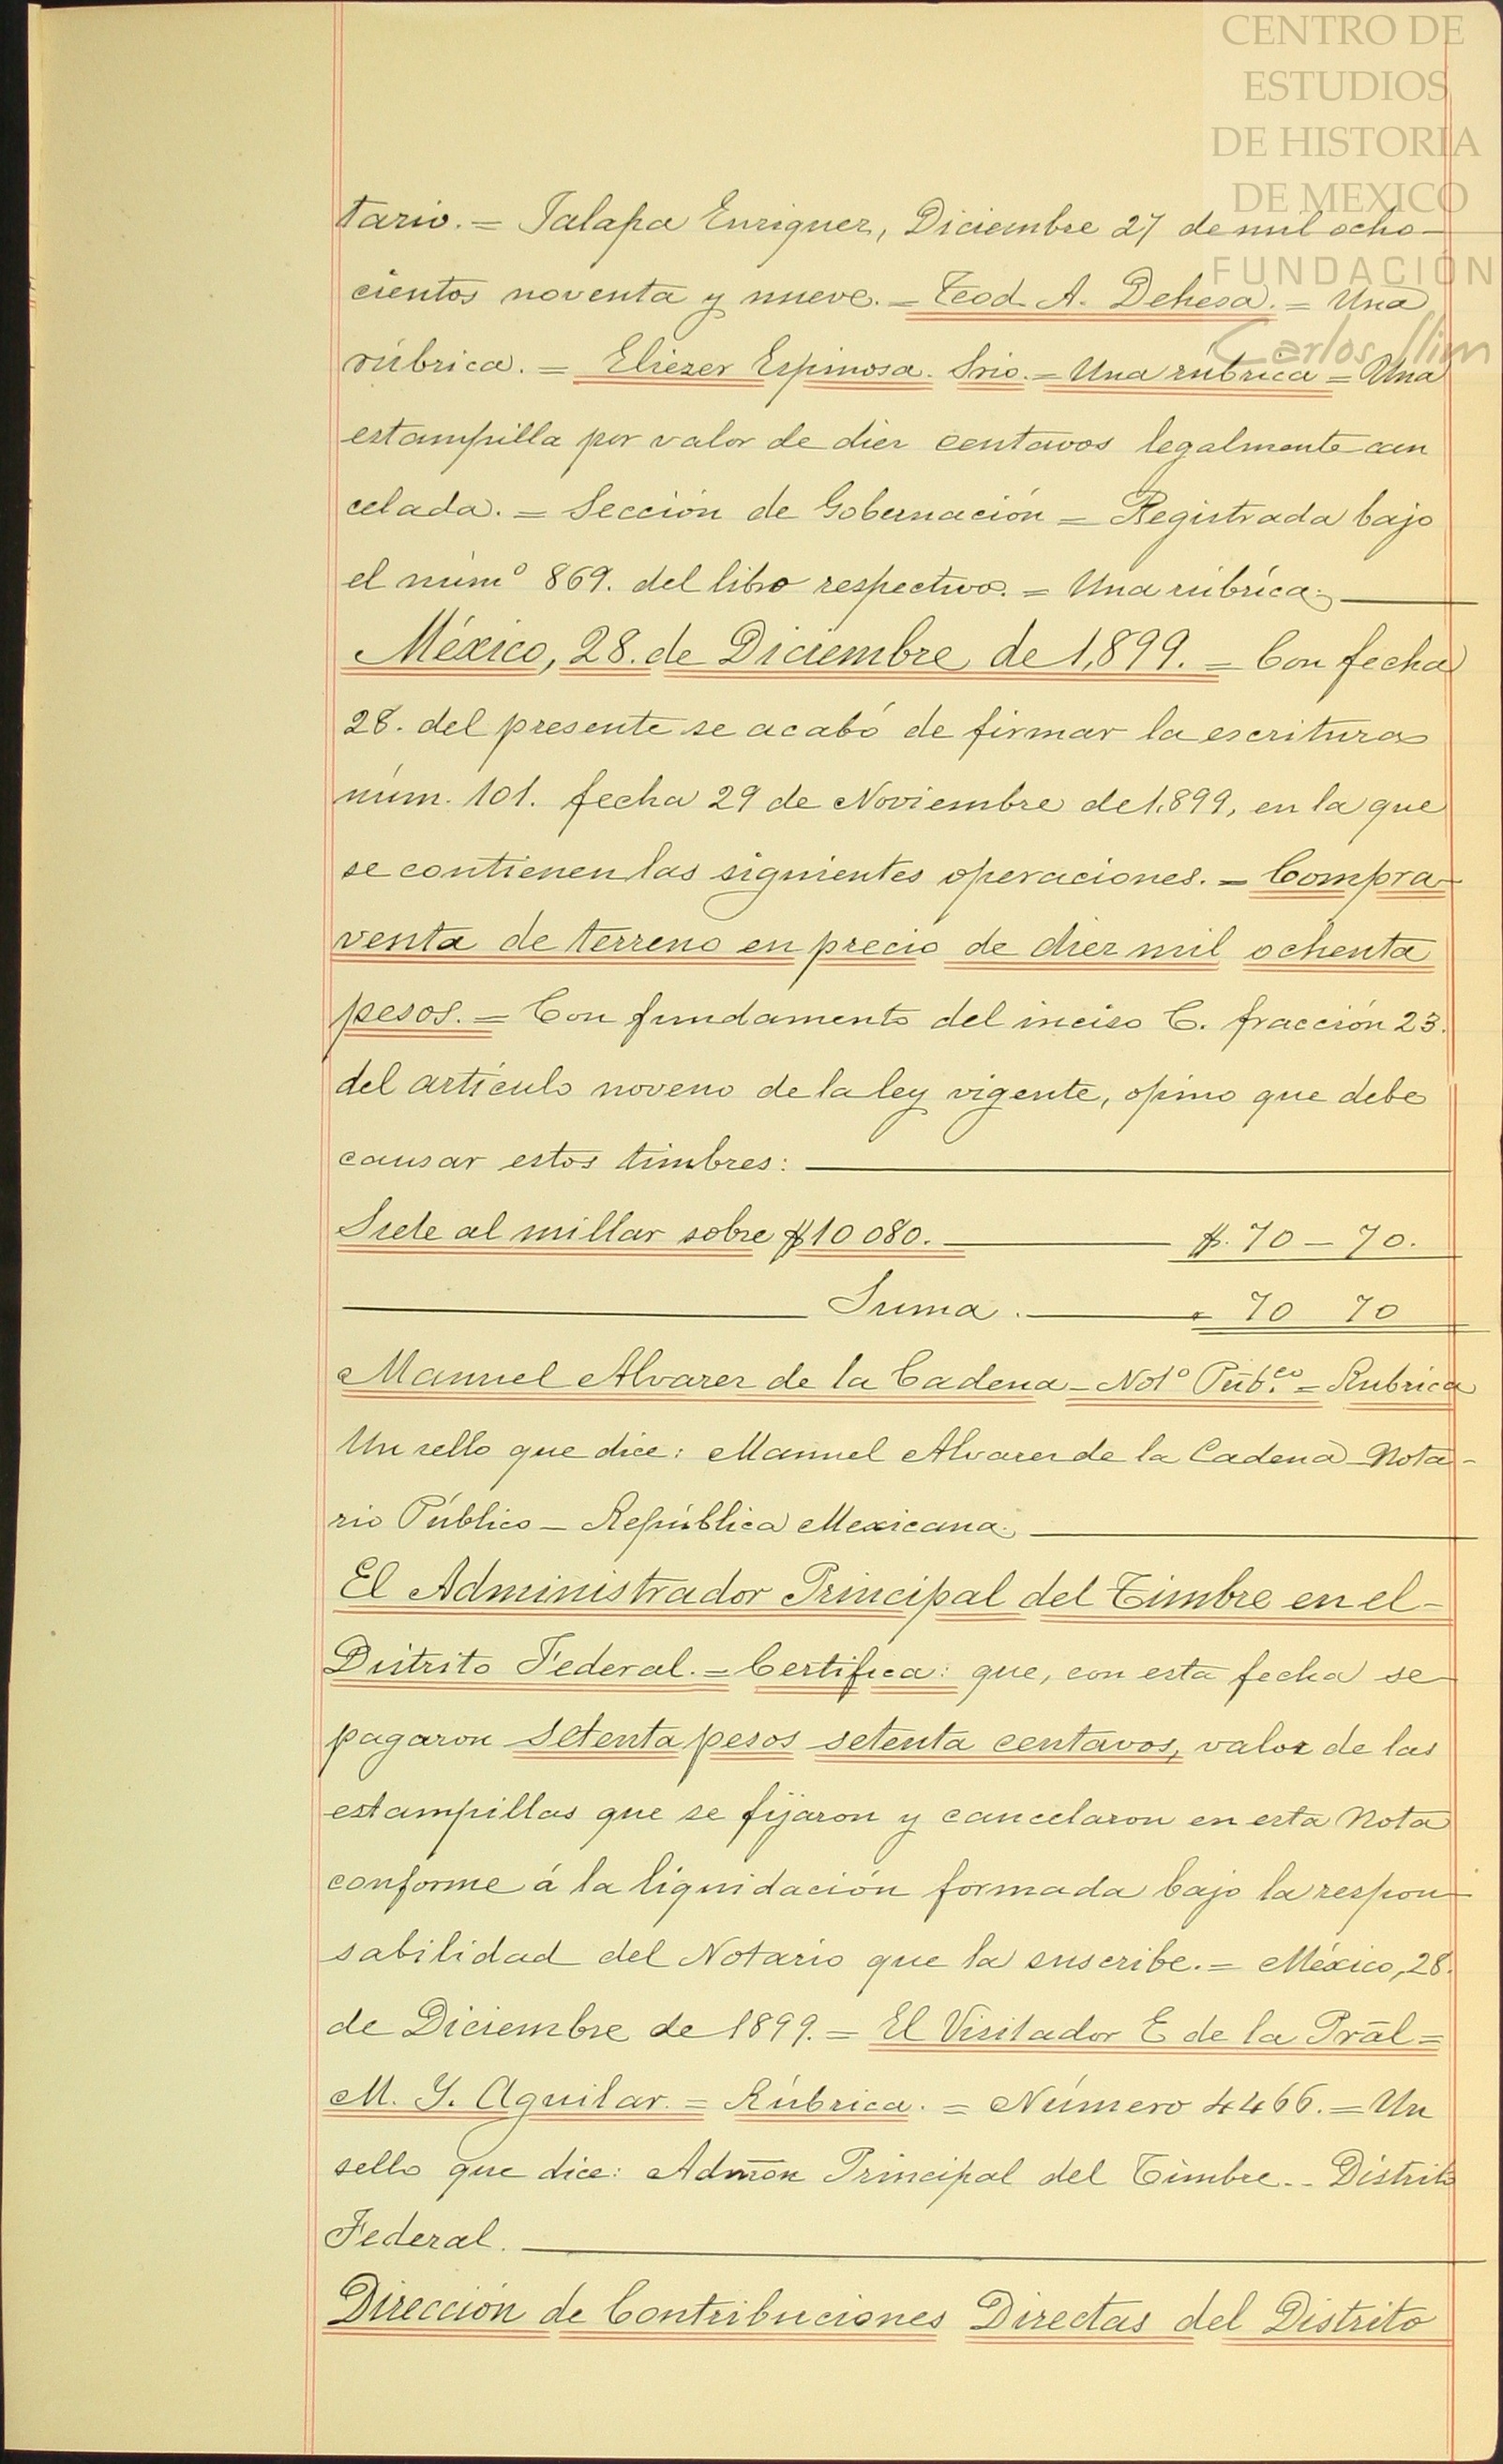 CENTRO DE
ESTUDIOS
DE HISTORIA
DE MEXICO
FUNDACIÓN
Carlos Slim
tario. = Jalapa Enriquez, Diciembre 27 de mil ocho-
cientos noventa y nueve. = Teod. A. Dehesa. = Una
rúbrica. = Eliezer Espinosa. Srio. = Una rúbrica = Una
estampilla por valor de diez centavos legalmente can
celada. = Sección de Gobernación = Registrada bajo
el númº 869. del libro respectivo. = Una rúbrica.
México, 28. de Diciembre de 1,899. = Con fecha
28. del presente se acabó de firmar la escritura
núm. 101. fecha 29 de Noviembre de 1,899, en la que
se contienen las siguientes operaciones. = Compra-
venta de terreno en precio de diez mil ochenta
pesos. = Con fundamento del inciso C. fracción 23.
del artículo noveno de la ley vigente, opino que debe
causar estos timbres:
Siete al millar sobre $10 080. $. 70 - 70.
Suma. " 70 70
Manuel Alvarez de la Cadena - Notº Púb.co = Rubrica
Un sello que dice: Manuel Alvarez de la Cadena - Nota-
rio Público - República Mexicana.
El Administrador Principal del Timbre en el-
Distrito Federal. = Certifica: que, con esta fecha se
pagaron setenta pesos setenta centavos, valor de las
estampillas que se fijaron y cancelaron en esta Nota
conforme á la liquidación formada bajo la respon-
sabilidad del Notario que la suscribe. = México, 28.
de Diciembre de 1899. = El Visitador E de la Prāl =
M. Y. Aguilar. = Rúbrica. = Número 4466. = Un
sello que dice: Admōn Principal del Timbre. - Distrito
Federal.
Dirección de Contribuciones Directas del Distrito